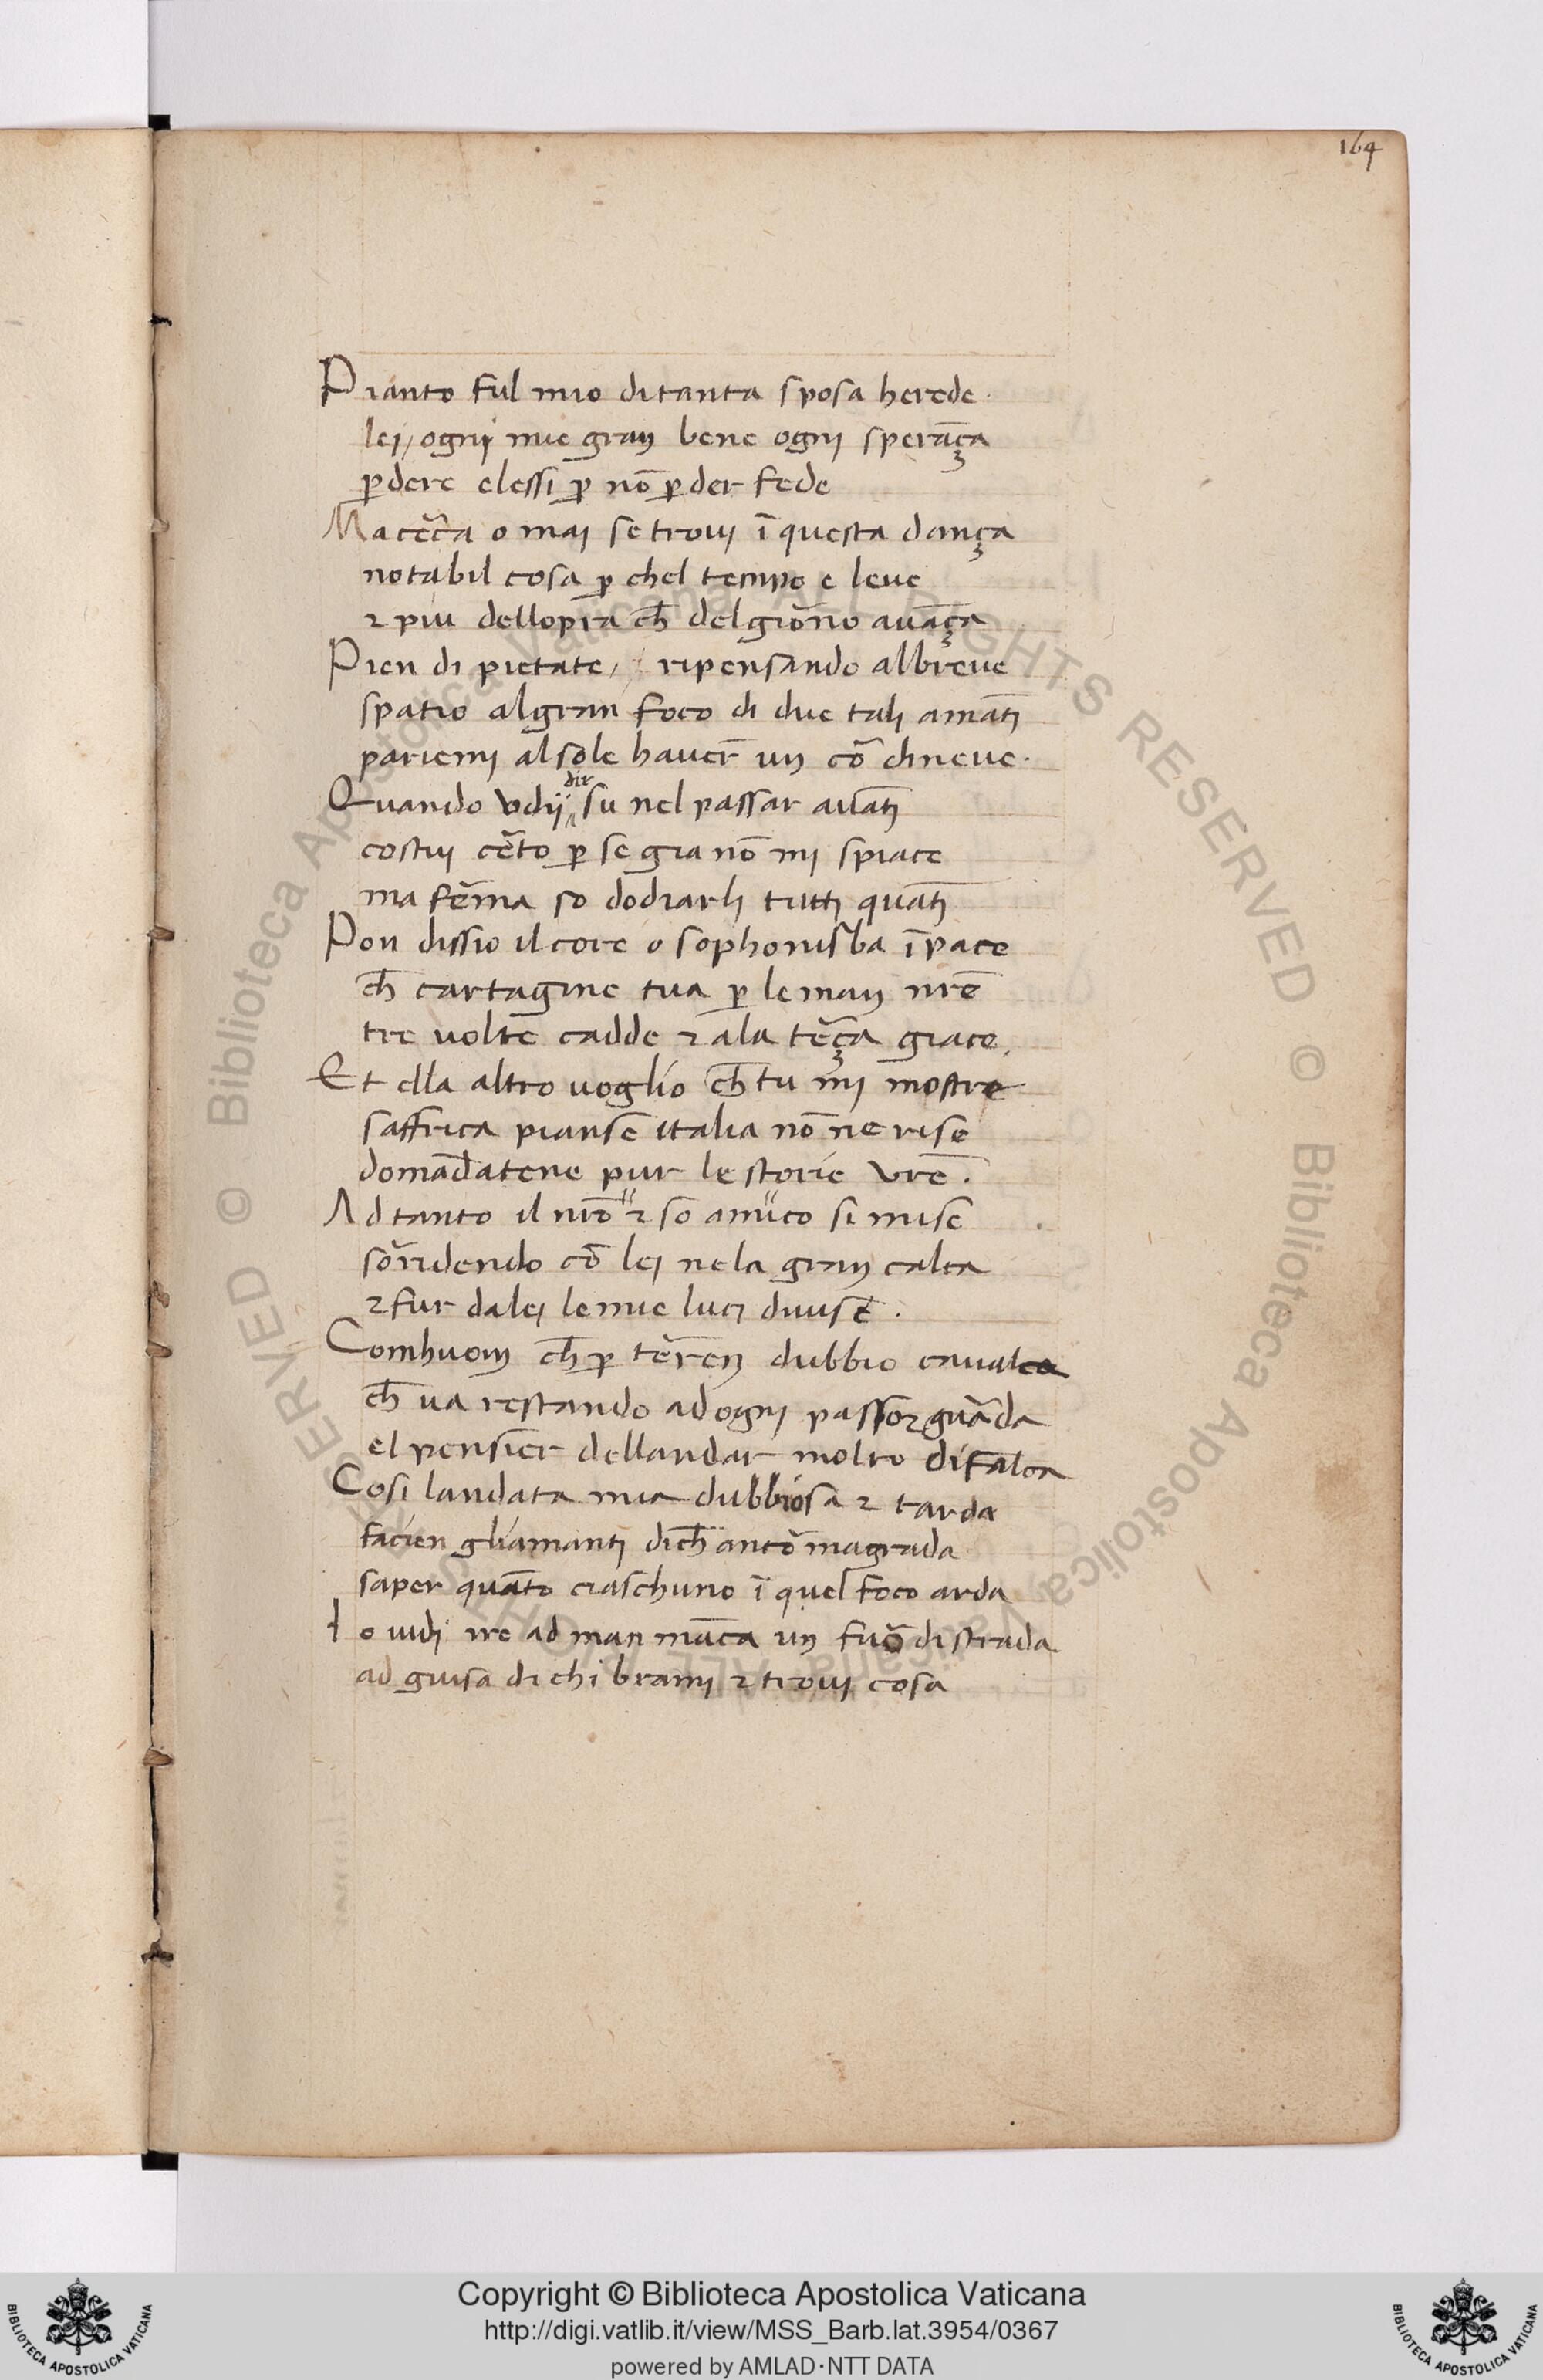 164
Pianto ful mio ditanta sposa herede.
lej, ognj mie gran bene ognj sperāça
ꝑdere elessi ꝑ nō ꝑder fede
Ma cēr̄a o maj se trovj ī questa dança
notabil cosa ꝑ chel tempo e leue
⁊ piu dellopra ch̄ delgiōno auāça
Pien di pietate, ripensando albreue
spatio algran foco di due talj amātj
pariemj alsole hauer̄ un cō dineue.
Quando vdij dir su nel passar auātj
costuj cēto ꝑ se gia nō mj spiace
ma fēma so dodiarlj tuttj quātj
Pon dissio il core o sophonisba ī pace
ch̄ cartagine tua ꝑ le man nrē
tre volte cadde ⁊ ala tēça giace.
Et ella altro uoglio ch̄ tu mj mostre
saffrica pianse italia nō ne rise
domādatene pur le storie vrē.
Ad tanto il nrō ⁊ so amico si mise
sōridendo cō lej nela gran calca
⁊ fur dalej le mie lucj diuise.
Comhuom ch̄ ꝑ tēren dubbio caualca
ch̄ ua restando ad ognj passo ⁊ guāda
el pensier dellandar molto difalca
Cosi landata mia dubbiosa ⁊ tarda
facien gliamantj dich̄ ancō magrada
saper quāto ciaschuno ī quel foco arda
Io uidj ire ad man māca un fuō di strada
ad guisa di chi bramj ⁊ trouj cosa
© Biblioteca Apostolica Vaticana ALL RIGHTS RESERVED © Biblioteca Apostolica Vaticana ALL RIGHTS RESERVED
Copyright © Biblioteca Apostolica Vaticana
http://digi.vatlib.it/view/MSS_Barb.lat.3954/0367
powered by AMLAD·NTT DATA
BIBLIOTECA APOSTOLICA VATICANA
BIBLIOTECA APOSTOLICA VATICANA